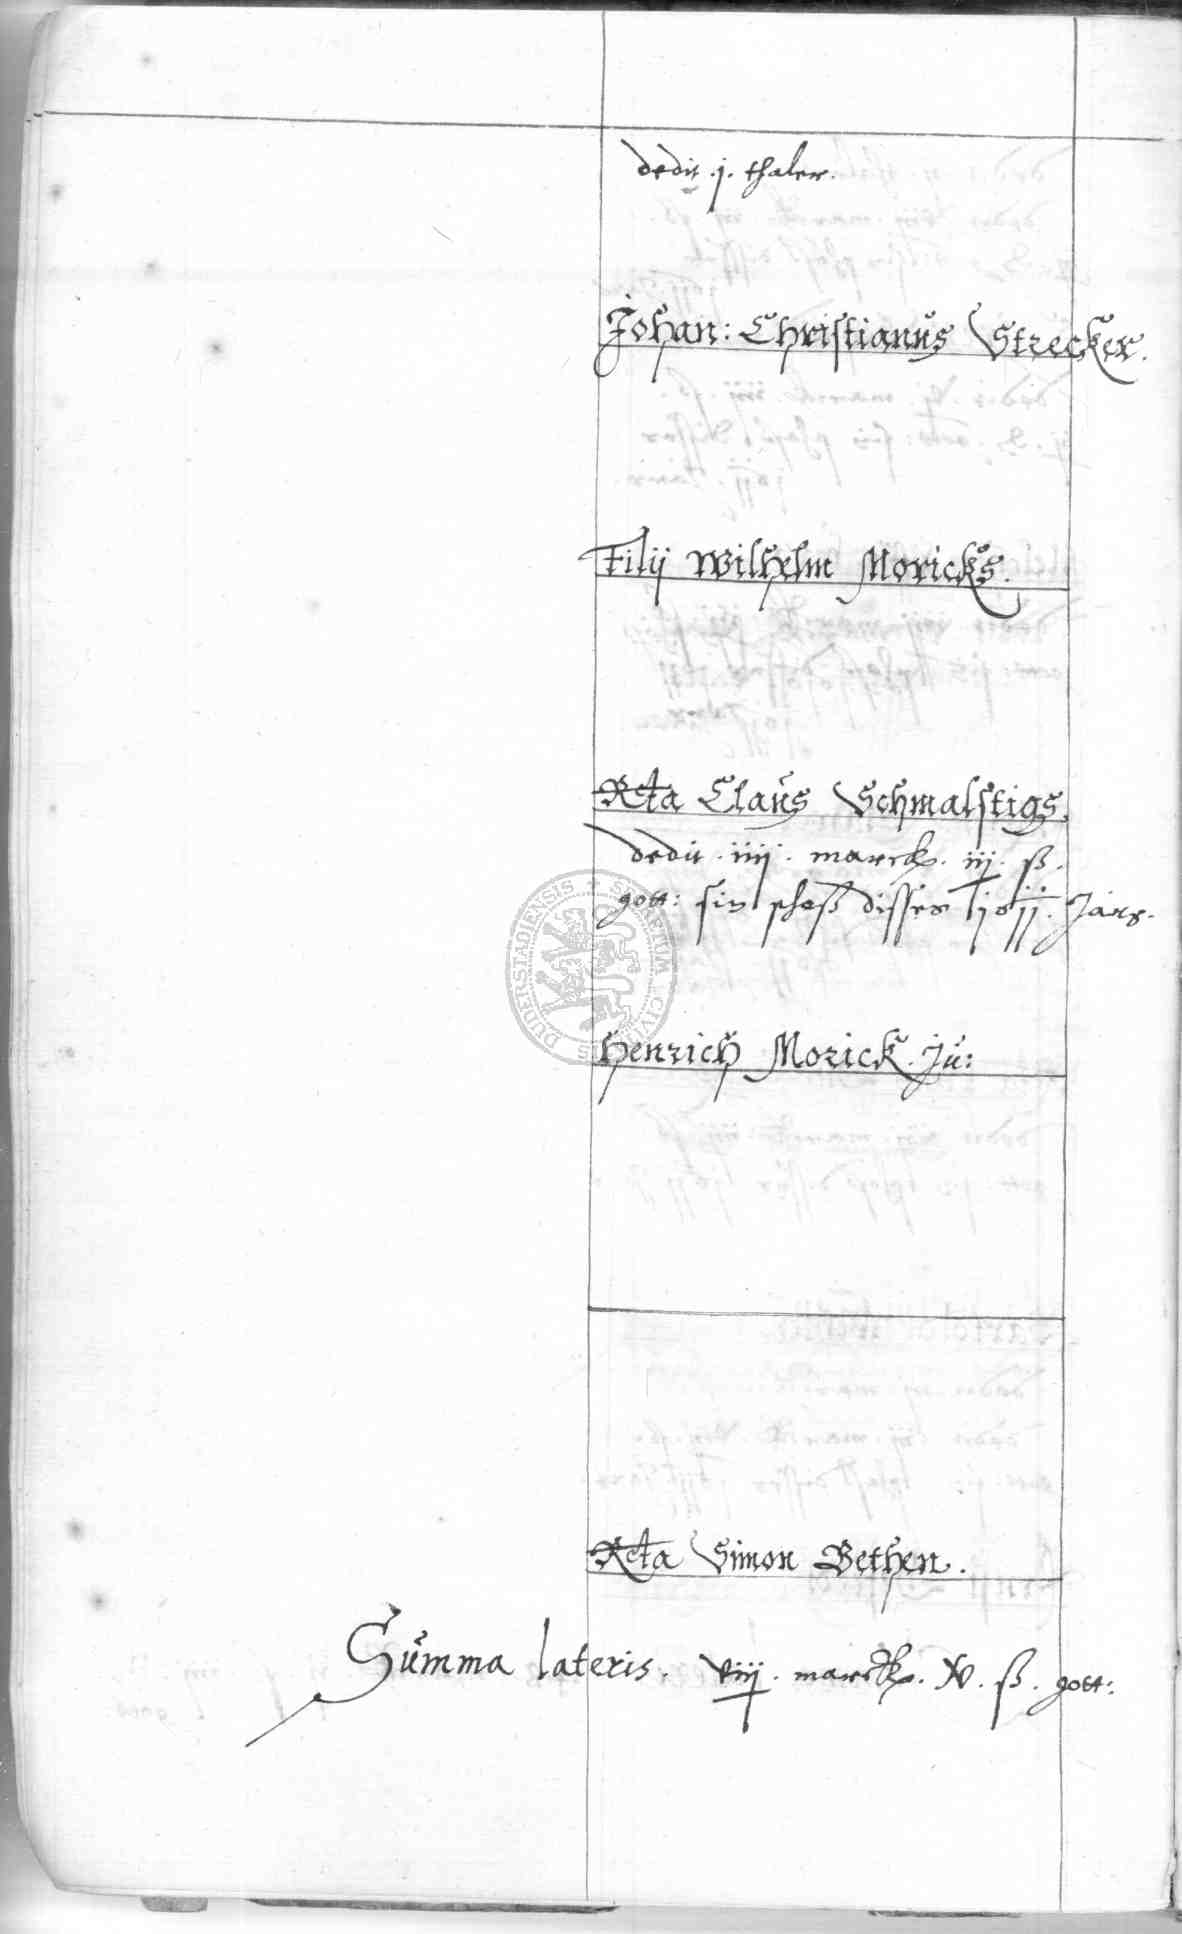 dedit .j. thaler.
Johan: Christianus Strecker.
Filij Wilhelm Moricks.
Rcta Claus Schmalstigs.
dedit . iiij . marck. iij. ß.
gott: sin schoß disses Jars.
Henrich Morick. Ju:
Rcta Simon Bethen.
Summa lateris. viij . marck. xv. ß. gott:
DUDERSTADIENSIS + SECRETUM CIVI